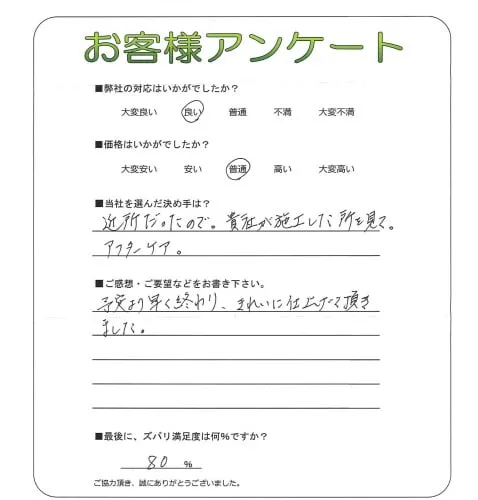 お客様アンケート
■弊社の対応はいかがでしたか？
大変良い 良い 普通 不満 大変不満
■価格はいかがでしたか？
大変安い 安い 普通 高い 大変高い
■当社を選んだ決め手は？
近所だったので。貴社が施工した所を見て。
アフターケア。
■ご感想・ご要望などをお書き下さい。
予定より早く終わり、きれいに仕上げて頂き
ました。
■最後に、ズバリ満足度は何%ですか？
80 %
ご協力頂き、誠にありがとうございました。